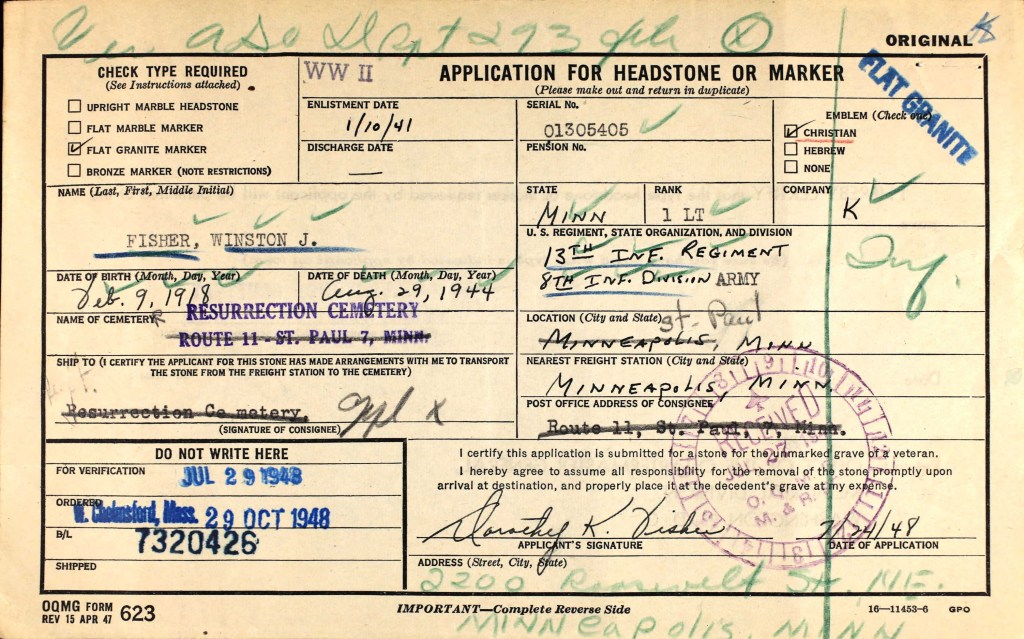 Ver ASD Dept 293 gph X
K
ORIGINAL
FLAT GRANITE
CHECK TYPE REQUIRED
(See Instructions attached)
UPRIGHT MARBLE HEADSTONE
FLAT MARBLE MARKER
FLAT GRANITE MARKER
BRONZE MARKER (NOTE RESTRICTIONS)
WW II
APPLICATION FOR HEADSTONE OR MARKER
(Please make out and return in duplicate)
ENLISTMENT DATE
1/10/41
DISCHARGE DATE
—
SERIAL No.
01305405
PENSION No.
EMBLEM (Check one)
CHRISTIAN
HEBREW
NONE
NAME (Last, First, Middle Initial)
FISHER, WINSTON J.
STATE
MINN
RANK
1 LT
COMPANY
K
U. S. REGIMENT, STATE ORGANIZATION, AND DIVISION
13TH INF. REGIMENT
8TH INF. DIVISION ARMY
Inf.
DATE OF BIRTH (Month, Day, Year)
Feb. 9, 1918
DATE OF DEATH (Month, Day, Year)
Aug. 29, 1944
NAME OF CEMETERY
RESURRECTION CEMETERY
ROUTE 11 - ST. PAUL 7, MINN.
LOCATION (City and State)
St. Paul
MINNEAPOLIS, MINN
SHIP TO (I CERTIFY THE APPLICANT FOR THIS STONE HAS MADE ARRANGEMENTS WITH ME TO TRANSPORT
THE STONE FROM THE FREIGHT STATION TO THE CEMETERY)
Resurrection Cemetery.
appl x
(SIGNATURE OF CONSIGNEE)
NEAREST FREIGHT STATION (City and State)
MINNEAPOLIS, MINN.
POST OFFICE ADDRESS OF CONSIGNEE
Route 11, St. Paul, 7, Minn.
DO NOT WRITE HERE
FOR VERIFICATION
JUL 29 1948
ORDERED
W. Chelmsford, Mass. 29 OCT 1948
B/L
7320426
SHIPPED
I certify this application is submitted for a stone for the unmarked grave of a veteran.
I hereby agree to assume all responsibility for the removal of the stone promptly upon
arrival at destination, and properly place it at the decedent's grave at my expense.
RECEIVED
JUL 27
O. Q. M. G.
M. & R.
Dorothy K. Fisher
7/24/48
APPLICANT'S SIGNATURE
DATE OF APPLICATION
ADDRESS (Street, City, State)
2200 Roosevelt St. N.E.
MINNEAPOLIS, MINN
OQMG FORM
REV 15 APR 47 623
IMPORTANT—Complete Reverse Side
16—11453-6 GPO